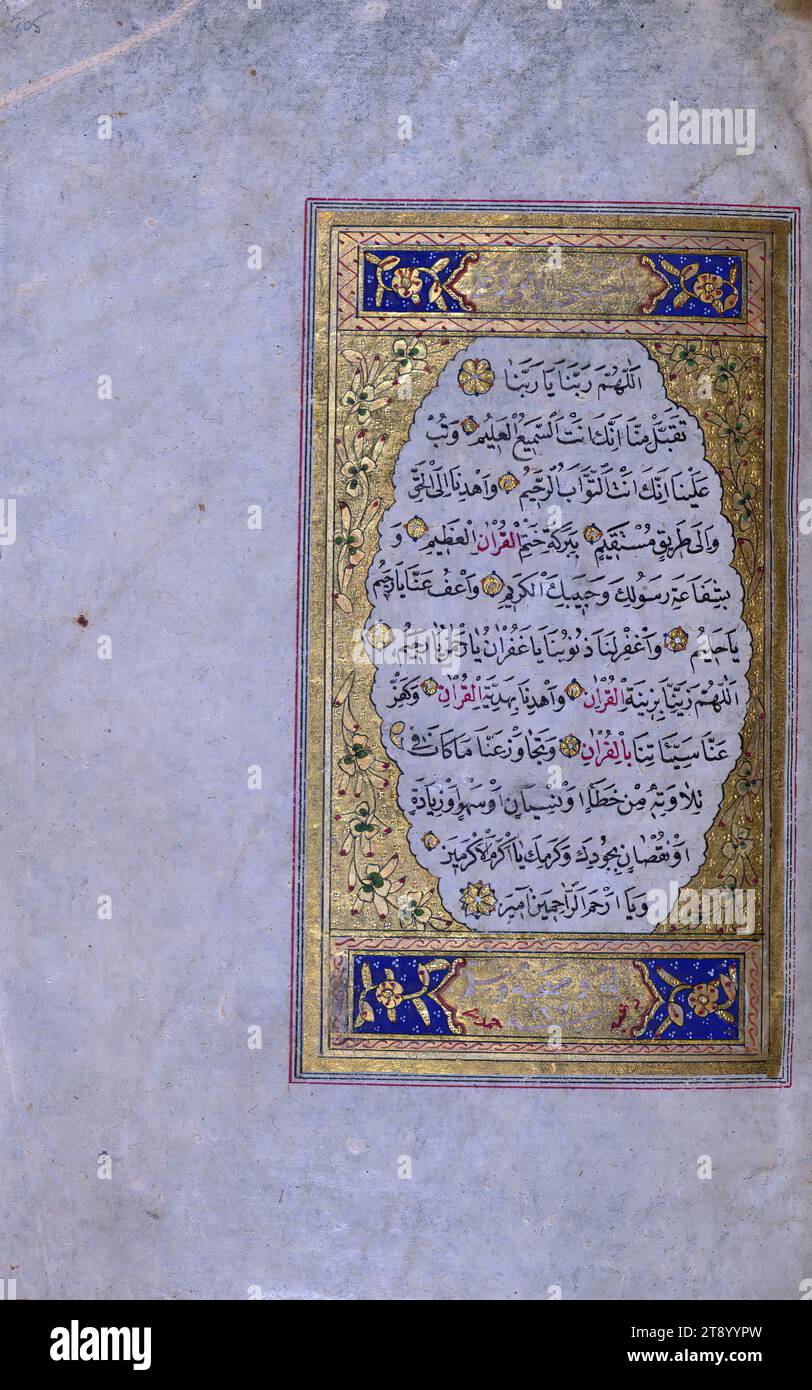 اَللّٰهُمَّ رَبَّنَا يَا رَبَّنَا
تَقَبَّلْ مِنَّا اِنَّكَ اَنْتَ السَّمِيعُ الْعَلِيمُ وَتُبْ
عَلَيْنَا اِنَّكَ اَنْتَ التَّوَّابُ الرَّحِيمُ وَاهْدِنَا اِلَى الْحَقِّ
وَاِلٰى طَرِيقٍ مُسْتَقِيمٍ بِبَرَكَةِ خَتْمِ الْقُرْاٰنِ الْعَظِيمِ وَ
بِشَفَاعَةِ رَسُولِكَ وَحَبِيبِكَ الْكَرِيمِ وَاعْفُ عَنَّا يَا رَحِيمُ
يَا حَلِيمُ وَاغْفِرْ لَنَا ذُنُوبَنَا يَا غُفْرَانُ يَا رَحْمٰنُ يَا رَحِيمُ
اَللّٰهُمَّ زَيِّنَّا بِزِينَةِ الْقُرْاٰنِ وَاهْدِنَا بِهَدِيَّةِ الْقُرْاٰنِ وَكَفِّرْ
عَنَّا سَيِّئَاتِنَا بِالْقُرْاٰنِ وَتَجَاوَزْ عَنَّا مَا كَانَ فِى
تِلَاوَتِهٖ مِنْ خَطَاءٍ اَوْ نِسْيَانٍ اَوْ سَهْوٍ اَوْ زِيَادَةٍ
اَوْ نُقْصَانٍ بِجُودِكَ وَكَرَمِكَ يَا اَكْرَمَ الْاَكْرَمِينَ
وَيَا اَرْحَمَ الرَّاحِمِينَ اٰمِينَ
alamy
Image ID: 2T8YYPW
www.alamy.com